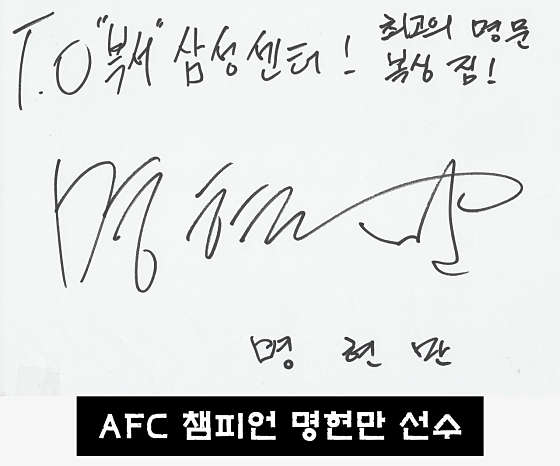 T.O "복서" 삼성센터!
최고의 명문
복싱 짐!
명현만
명 현 만
AFC 챔피언 명현만 선수